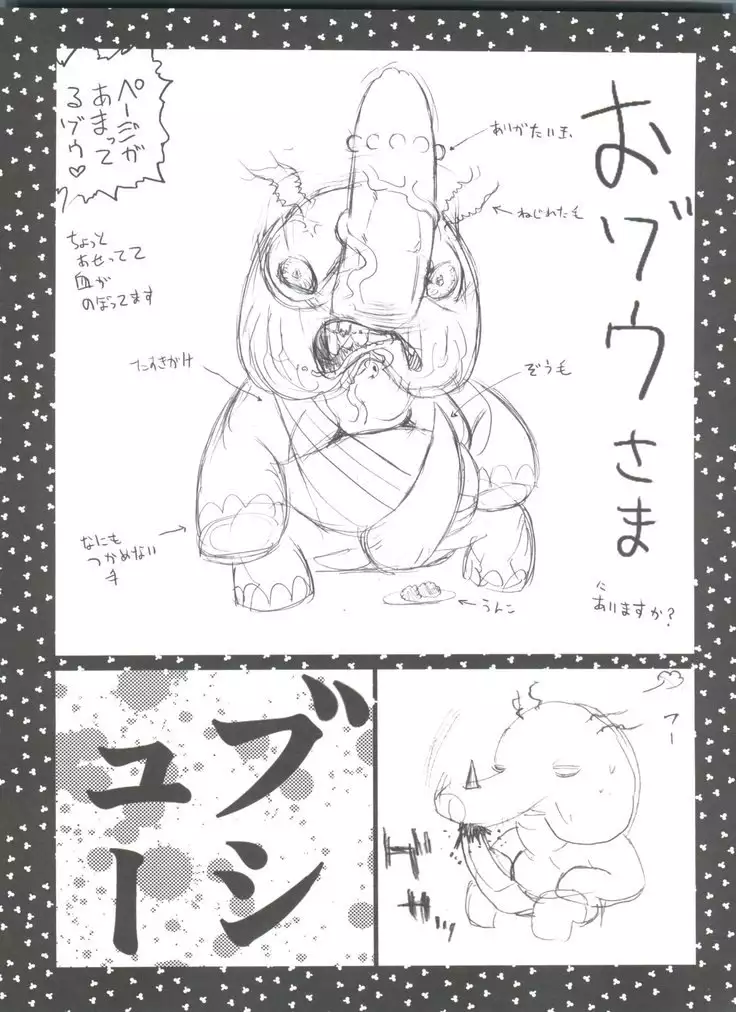 おゾウさま
にありますか?
ページが
あまって
るゾウ♡
ちょっと
あせってて
血が
のぼってます
ありがたい玉
ねじれた毛
たすきがけ
ぞう毛
なにも
つかめない
手
うんこ
ブシ
ュー
フー
ギザッ